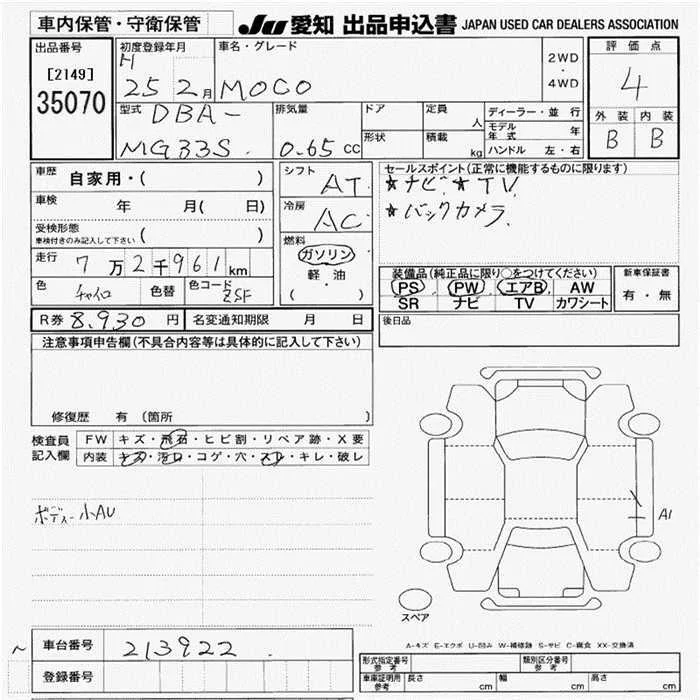 車内保管・守衛保管
JU 愛知 出品申込書 JAPAN USED CAR DEALERS ASSOCIATION
出品番号
[2149]
35070
初度登録年月
H
25 2月
車名・グレード
MOCO
2WD
・
4WD
評価点
4
外装 内装
B B
型式
DBA-
MG33S
排気量
0.65 CC
ドア
形状
定員
人
積載
kg
ディーラー・並行
モデル年式 年
ハンドル 左・右
車歴
自家用・( )
車検
年 月( 日)
受検形態
車検付きのみ記入して下さい ( )
走行
7万2千961km
色
チャイロ
色替
色コード
ZSF
シフト
AT
冷房
AC
燃料
ガソリン
軽油
( ・ )
セールスポイント(正常に機能するものに限ります)
★ナビ.★TV
★バックカメラ.
装備品(純正品に限り○をつけてください)
PS PW エアB AW
SR ナビ TV カワシート
新車保証書
有・無
R券 8,930 円
名変通知期限 月 日
後日品
注意事項申告欄(不具合内容等は具体的に記入して下さい)
修復歴 有(箇所 )
検査員
記入欄
FW キズ・飛石・ヒビ割・リペア跡・X要
内装 キズ・汚レ・コゲ・穴・スレ・キレ・破レ
ボディー小AU
A1
スペア
A-キズ E-エクボ U-凹み W-補修跡 S-サビ C-腐食 XX-交換済
~
車台番号
213922
登録番号
形式指定番号
参考
類別区分番号
参考
車庫証明用
参考
長さ cm
幅 cm
高さ cm